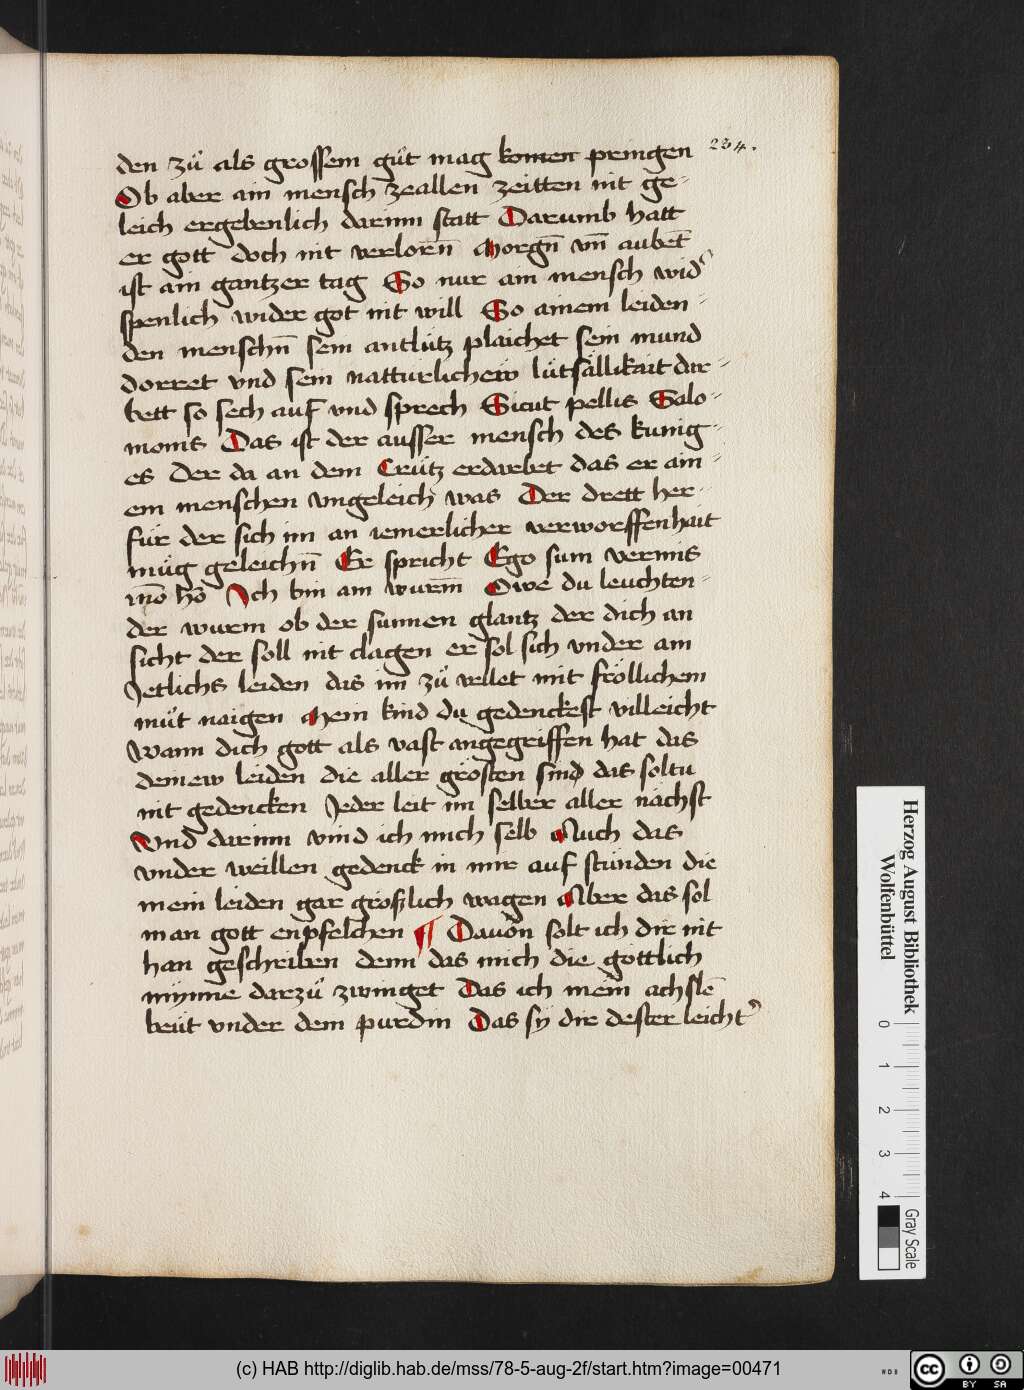 234.
den zů als grossem gůt mag komen pringen
Ob aber ain mensch zeallen zeitten nit ge-
leich ergebenlich darinn statt Darumb hatt
er gott doch nit verlorn̄ Morgn̄ vn̄ aubet̄
ist ain gantzer tag So nur ain mensch wid᷑
spenlich wider got nit will So ainem leiden-
den menschn̄ sein antlütz plaichet sein mund
dorret vnd sein natturlichew lütsällikait dar-
bett so sech auf vnd sprech Sicut pellis Salo-
monis Das ist der ausser mensch des kunig-
es Der da an dem Crütz erdarbet das er ain-
em menschen vngeleich was Der drett her-
für der sich im an iemerlicher verworffenhait
müg geleichn̄ Er spricht Ego sum vermis
nō hō Ich bin ain wurm̄ Owe du leuchten-
der wurm ob der sunnen glantz der dich an
sicht der soll nit clagen er sol sich vnder ain
Jetlichs leiden das im zů vellet mit fröllichem
můt naigen Mein kind du gedenckest villeicht
Wann dich gott als vast angegriffen hat das
deinew leiden die aller grösten sind das soltu
nit gedencken Jeder leit im selber aller nächst
Vnd darinn vind ich mich selb Auch das
vnder weillen gedenck in mir auf stünden die
mein leiden gar gröslich wagen Aber das sol
man gott enpfelchen ¶ Dauon solt ich dir nit
han geschriben denn das mich die göttlich
mynne darzů zwinget Das ich mein achslē
beüt vnder dein pürdin Das sÿ dir dester leicht᷑
Herzog August Bibliothek
Wolfenbüttel
0 1 2 3 4
Gray Scale
(c) HAB http://diglib.hab.de/mss/78-5-aug-2f/start.htm?image=00471
WDB
cc BY SA